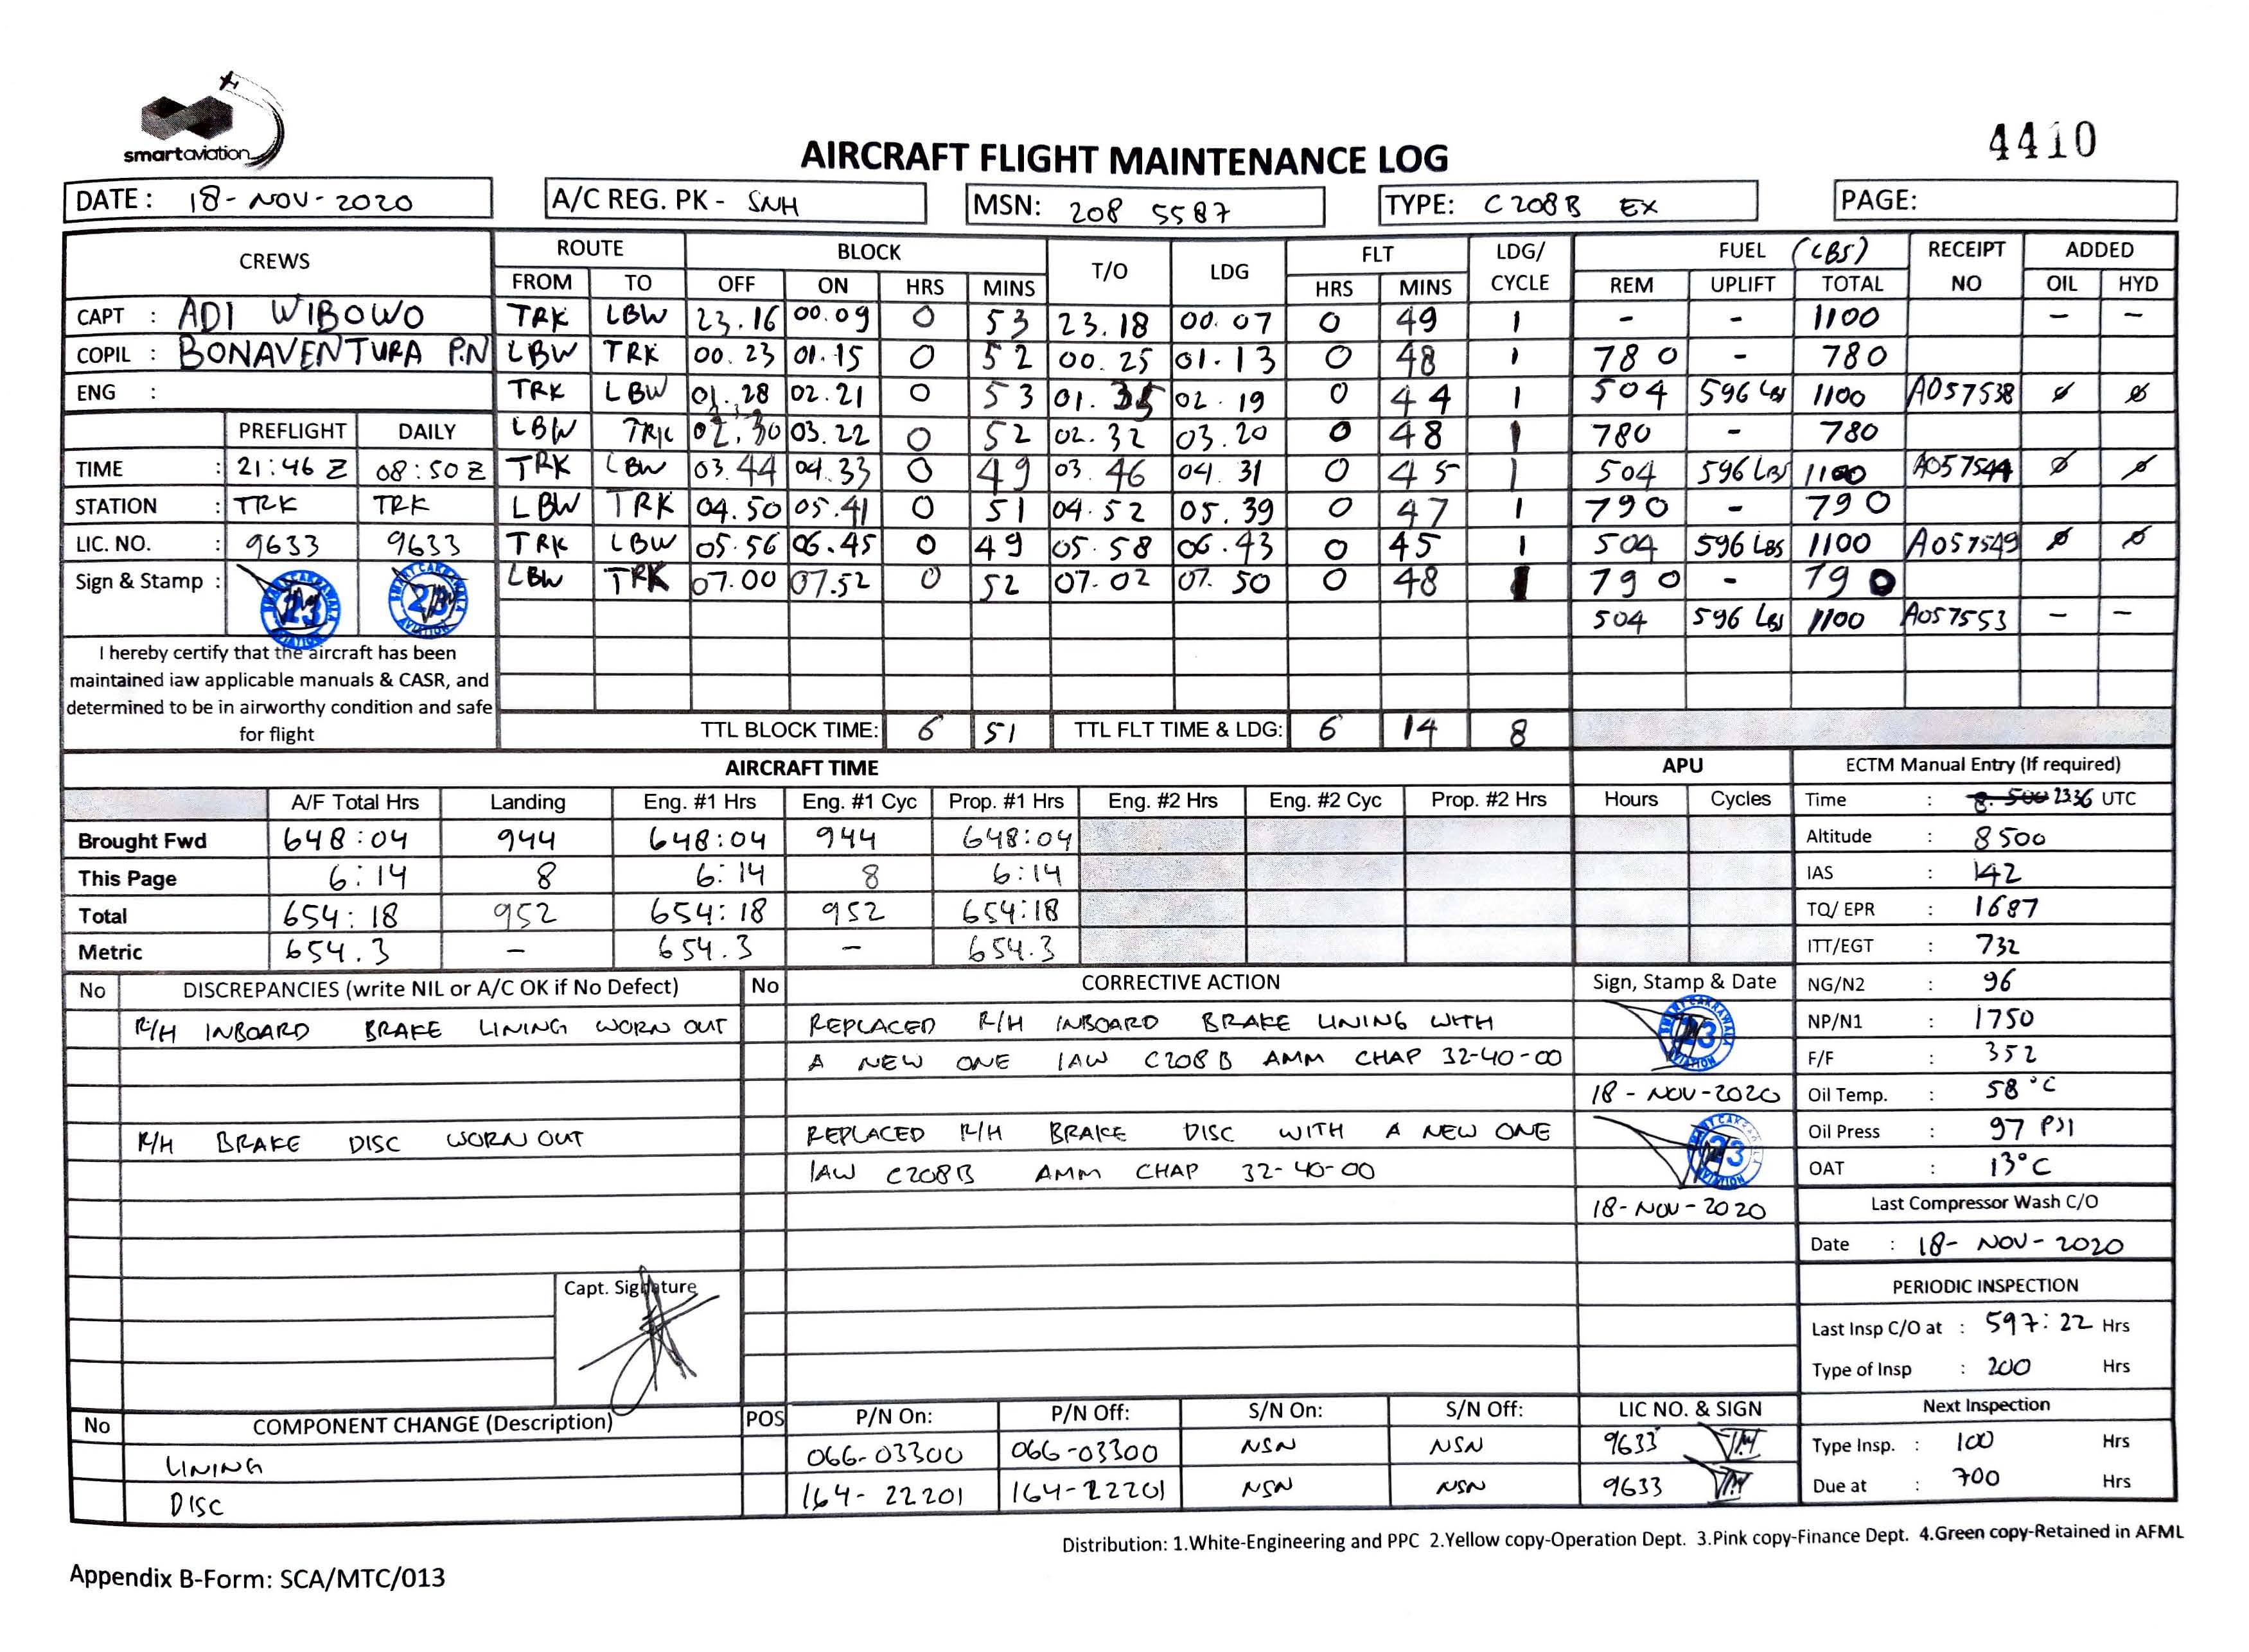 smartaviation
AIRCRAFT FLIGHT MAINTENANCE LOG
4410
DATE : 18-NOV-2020 A/C REG. PK - SNH MSN: 208 5587 TYPE: C208B EX PAGE:
CREWS ROUTE BLOCK T/O LDG FLT LDG/ FUEL (LBS) RECEIPT ADDED
FROM TO OFF ON HRS MINS HRS MINS CYCLE REM UPLIFT TOTAL NO OIL HYD
CAPT : ADI WIBOWO TRK LBW 23.16 00.09 0 53 23.18 00.07 0 49 1 - - 1100 - -
COPIL : BONAVENTURA P.N LBW TRK 00.23 01.15 0 52 00.25 01.13 0 48 1 780 - 780
ENG : TRK LBW 01.28 02.21 0 53 01.35 02.19 0 44 1 504 596 LBS 1100 A057538 ø ø
PREFLIGHT DAILY LBW TRK 02.30 03.22 0 52 02.32 03.20 0 48 1 780 - 780
TIME : 21:46 Z 08:50 Z TRK LBW 03.44 04.33 0 49 03.46 04.31 0 45 1 504 596 LBS 1100 A057544 ø ø
STATION : TRK TRK LBW TRK 04.50 05.41 0 51 04.52 05.39 0 47 1 790 - 790
LIC. NO. : 9633 9633 TRK LBW 05.56 06.45 0 49 05.58 06.43 0 45 1 504 596 LBS 1100 A057549 ø ø
Sign & Stamp : LBW TRK 07.00 07.52 0 52 07.02 07.50 0 48 1 790 - 790
SMART CAKRAWALA AVIATION 23
504 596 LBS 1100 A057553 - -
I hereby certify that the aircraft has been
maintained iaw applicable manuals & CASR, and
determined to be in airworthy condition and safe
for flight
TTL BLOCK TIME: 6 51 TTL FLT TIME & LDG: 6 14 8
AIRCRAFT TIME APU ECTM Manual Entry (If required)
A/F Total Hrs Landing Eng. #1 Hrs Eng. #1 Cyc Prop. #1 Hrs Eng. #2 Hrs Eng. #2 Cyc Prop. #2 Hrs Hours Cycles Time : 2336 UTC
Brought Fwd 648:04 944 648:04 944 648:04 Altitude : 8500
This Page 6:14 8 6:14 8 6:14 IAS : 142
Total 654:18 952 654:18 952 654:18 TQ/ EPR : 1687
Metric 654.3 - 654.3 - 654.3 ITT/EGT : 732
No DISCREPANCIES (write NIL or A/C OK if No Defect) No CORRECTIVE ACTION Sign, Stamp & Date NG/N2 : 96
R/H INBOARD BRAKE LINING WORN OUT REPLACED R/H INBOARD BRAKE LINING WITH NP/N1 : 1750
A NEW ONE IAW C208B AMM CHAP 32-40-00 F/F : 352
18-NOV-2020 Oil Temp. : 58°C
R/H BRAKE DISC WORN OUT REPLACED R/H BRAKE DISC WITH A NEW ONE Oil Press : 97 PSI
IAW C208B AMM CHAP 32-40-00 OAT : 13°C
18-NOV-2020 Last Compressor Wash C/O
Date : 18-NOV-2020
Capt. Signature PERIODIC INSPECTION
Last Insp C/O at : 597:22 Hrs
Type of Insp : 200 Hrs
No COMPONENT CHANGE (Description) POS P/N On: P/N Off: S/N On: S/N Off: LIC NO. & SIGN Next Inspection
LINING 066-03300 066-03300 NSN NSN 9633 Type Insp. : 100 Hrs
DISC 164-22201 164-22201 NSN NSN 9633 Due at : 700 Hrs
Distribution: 1.White-Engineering and PPC 2.Yellow copy-Operation Dept. 3.Pink copy-Finance Dept. 4.Green copy-Retained in AFML
Appendix B-Form: SCA/MTC/013